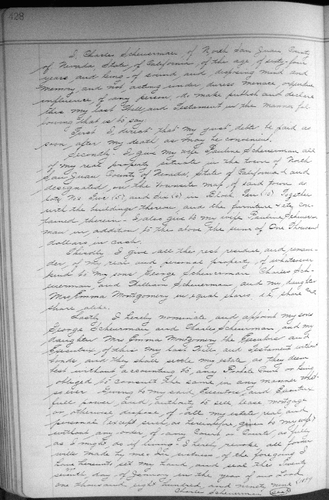 428
I Charles Scheuerman, of North San Juan County
of Nevada State of California of the age of sixty four
years and being of sound and disposing mind and
memory and not acting under duress menace
influence of any person, do make publish and declare
this my Last Will and Testament in the manner fol
lowing that is to say
First I direct that my just debts be paid as
soon after my death as may be convenient
Secondly I give my wife Pauline Scheuerman, all
of my real property situate in the town of North
San Juan County of Nevada, State of California and
designated on the Townsite map of said town as
Lots No Five (5) and Six (6) in Block Ten (10). Together
with the buildings Thereon and the furniture etc con
tained therein. I also give to my wife Pauline Scheuerman
in addition to the above the sum of One Thousand
dollars in cash.
Thirdly I give all the rest residue, and remain
der of my real and personal property of whatever
kind to my sons George Scheuerman, Charles Sch
euerman, and William Scheuerman, and my daughter
Mrs Emma Montgomery in equal shares, share and
share alike.
Lastly I hereby nominate and appoint my sons
George Scheuerman and Charles Scheuerman, and my
daughter Mrs Emma Montgomery the Executors and
Executrix of this my Last Will and Testament without
bonds and they shall settle my estate as they deem
best without accounting to any Probate Court or being
obliged to consult the same in any manner what
so ever. Giving to my said Executors, and Executrix
full power and authority to sell lease mortgage
or otherwise dispose of all my estate real and
personal (except such as heretofore given to my wife)
without any order of any Court as fully
as I might do if living. I hereby revoke all former
wills made by me. In witness of the foregoing I
have hereunto set my hand and seal this
day of in the year of our Lord
one thousand eight hundred and ninety nine (1899)
Charles Scheuerman